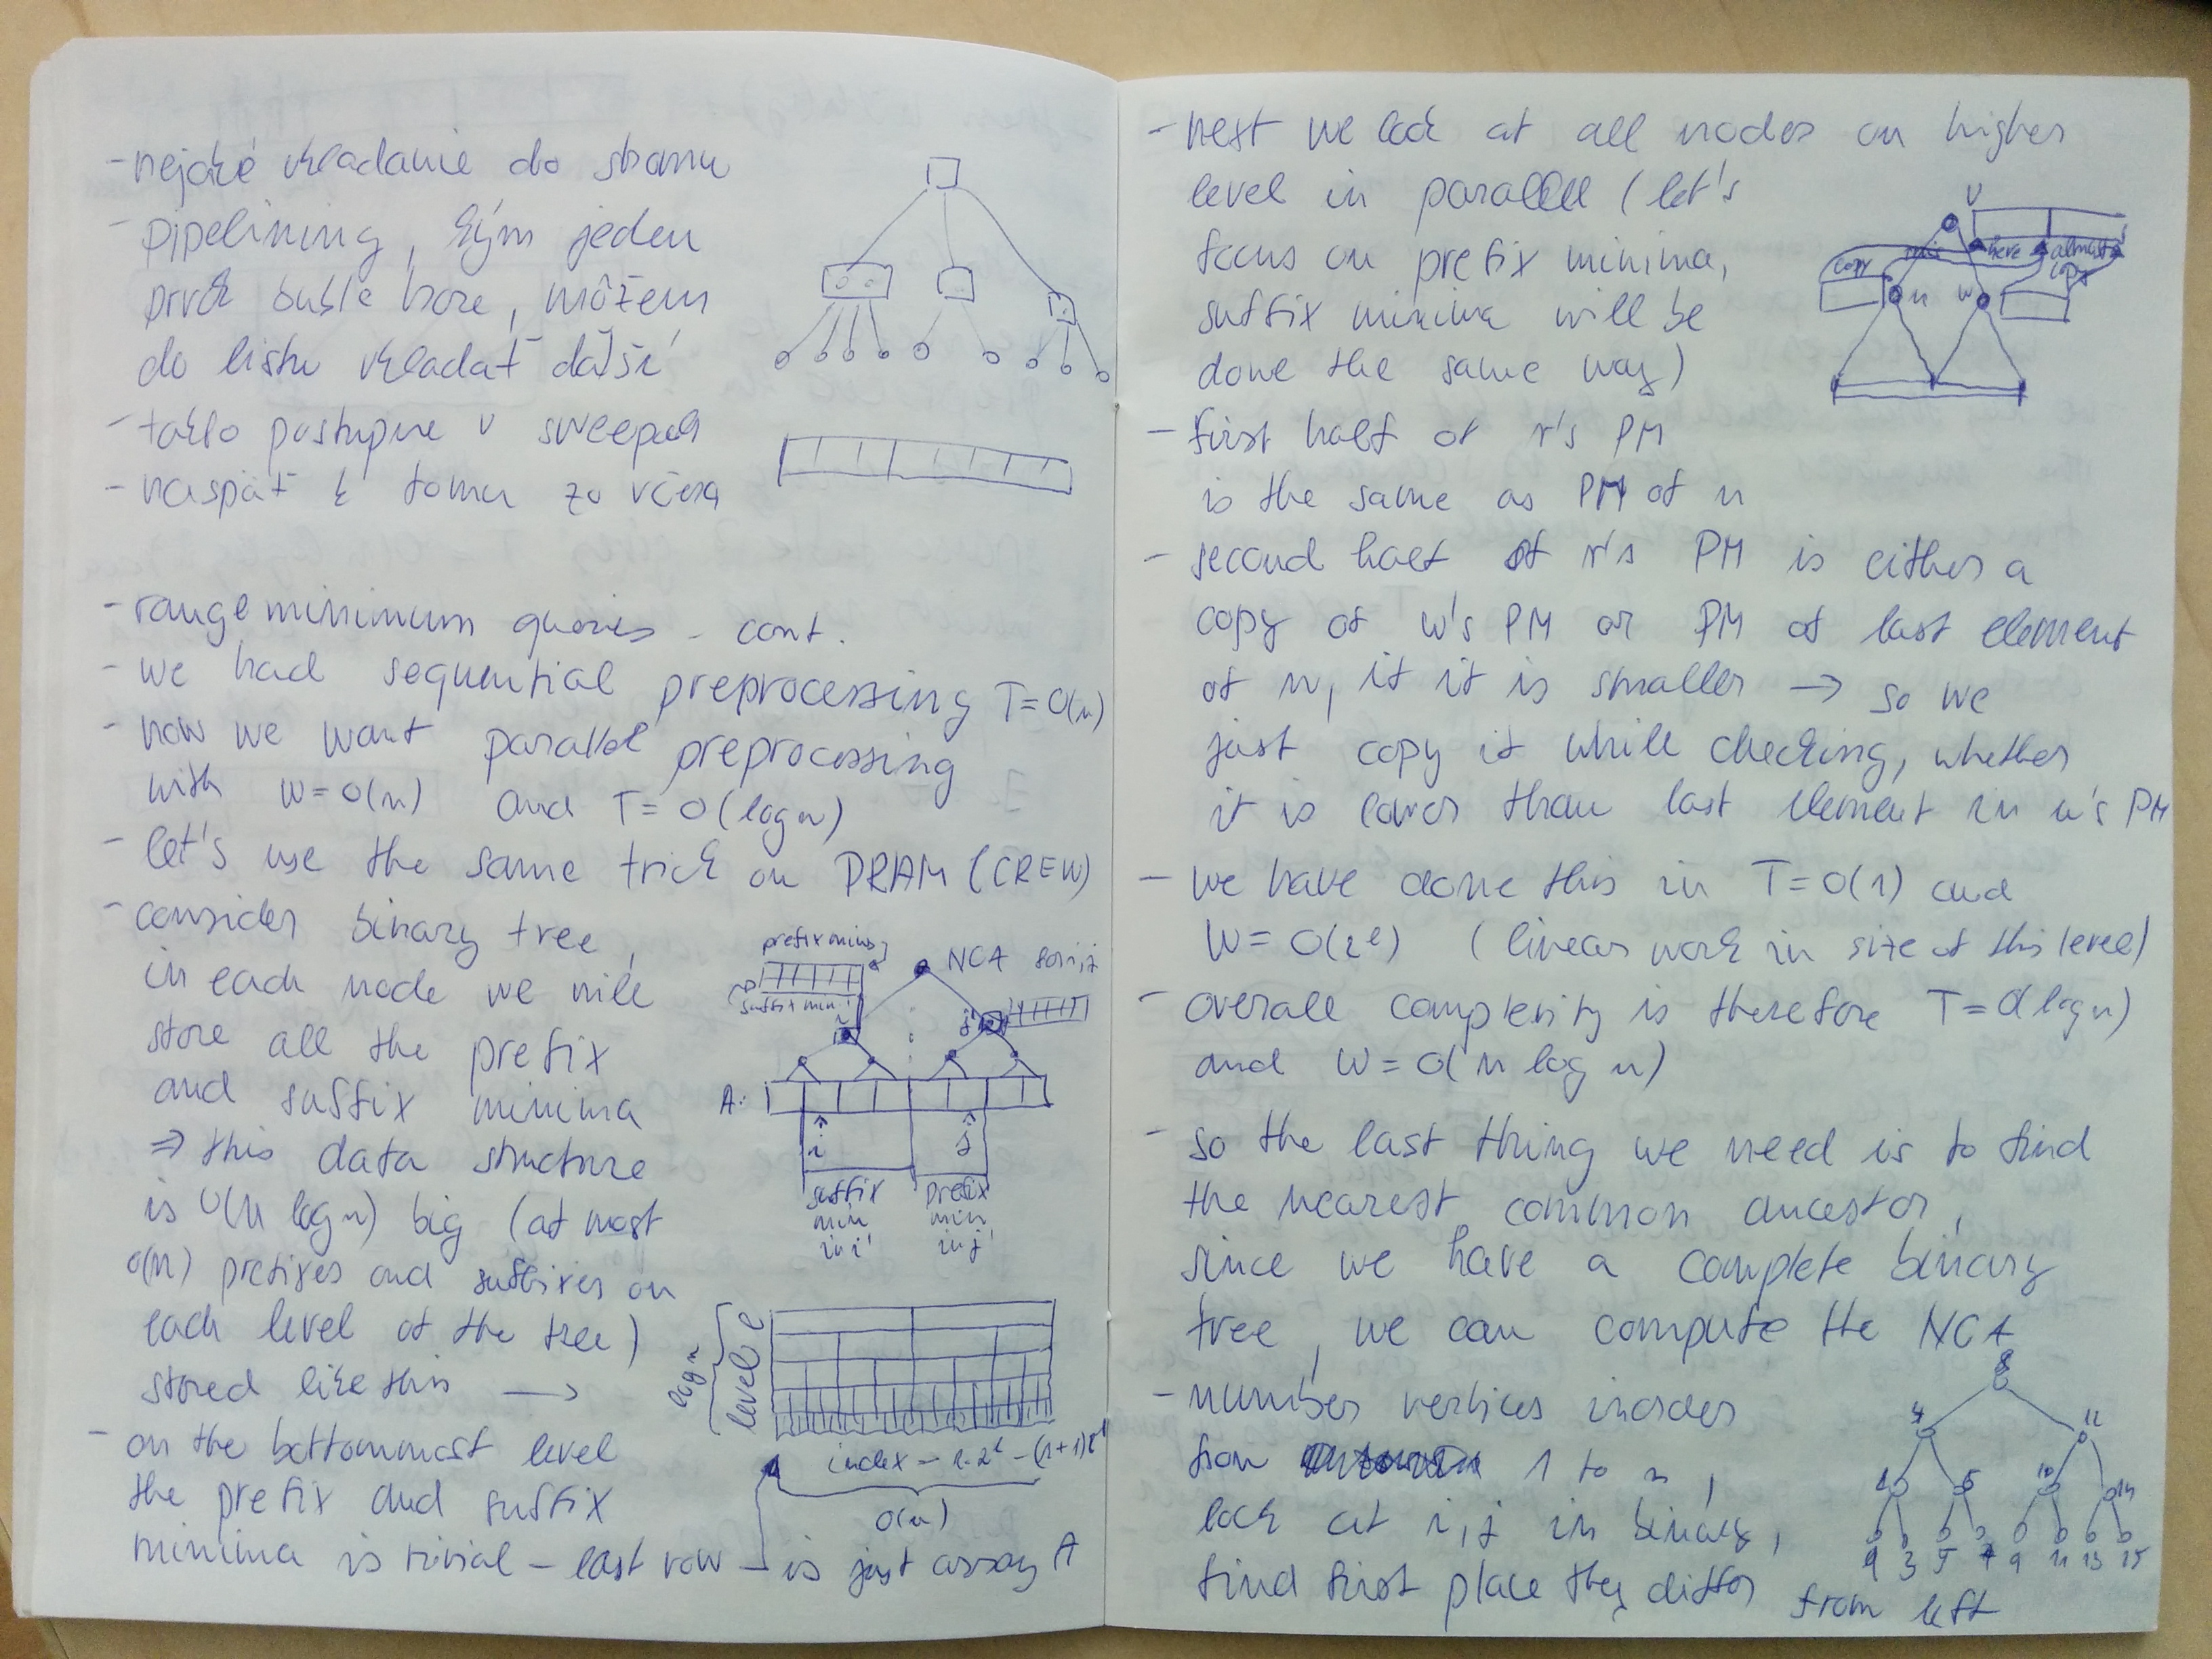 - nejaké vkladanie do stromu
- pipelining, kým jeden
prvok buble hore, môžem
do listu vkladať ďalší
- takto postupne v sweepoch
- naspäť k tomu zo včera
- range minimum queries - cont.
- we had sequential preprocessing T=O(n)
- now we want parallel preprocessing
with W=O(n) and T=O(log n)
- let's use the same trick on PRAM (CREW)
- consider binary tree,
in each node we will
store all the prefix
and suffix minima
⇒ this data structure
is O(n log n) big (at most
O(n) prefixes and suffixes on
each level of the tree)
stored like this →
- on the bottommost level
the prefix and suffix
minima is trivial - last row - is just array A
prefix mins
suffix min
NCA for i,j
i'
j'
A:
i
j
suffix
min
in i'
prefix
min
in j'
log n
level l
index
O(n)
- next we look at all nodes on higher
level in parallel (let's
focus on prefix minima,
suffix minima will be
done the same way)
- first half of v's PM
is the same as PM of u
- second half of v's PM is either a
copy of w's PM or PM of last element
of u, if it is smaller → so we
just copy it while checking, whether
it is lower than last element in u's PM
- we have done this in T=O(1) and
W=O(2^l) (linear work in size of this level)
- overall complexity is therefore T=O(log n)
and W=O(n log n)
- so the last thing we need is to find
the nearest common ancestor,
since we have a complete binary
tree, we can compute the NCA
- number vertices inorder
from 1 to n,
look at i,j in binary,
find first place they differ from left
v
copy
here
almost
copy
u
w
8
4 12
2 6 10 14
1 3 5 7 9 11 13 15